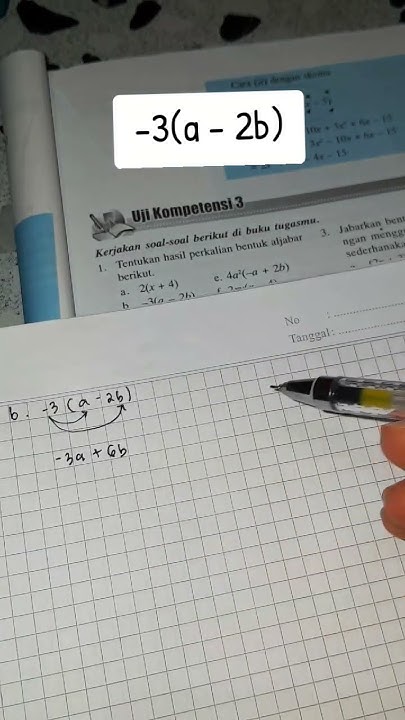 -3(a - 2b)
Cara (ii) dengan skema
10x + 3x² + 6x - 15
3x² - 10x + 6x - 15
4x - 15
Uji Kompetensi 3
Kerjakan soal-soal berikut di buku tugasmu.
1. Tentukan hasil perkalian bentuk aljabar
berikut.
a. 2(x + 4)
b. -3(a - 2b)
e. 4a²(-a + 2b)
3. Jabarkan
ngan
sederhanaka
No :
Tanggal :
b. -3 (a - 2b)
-3a + 6b